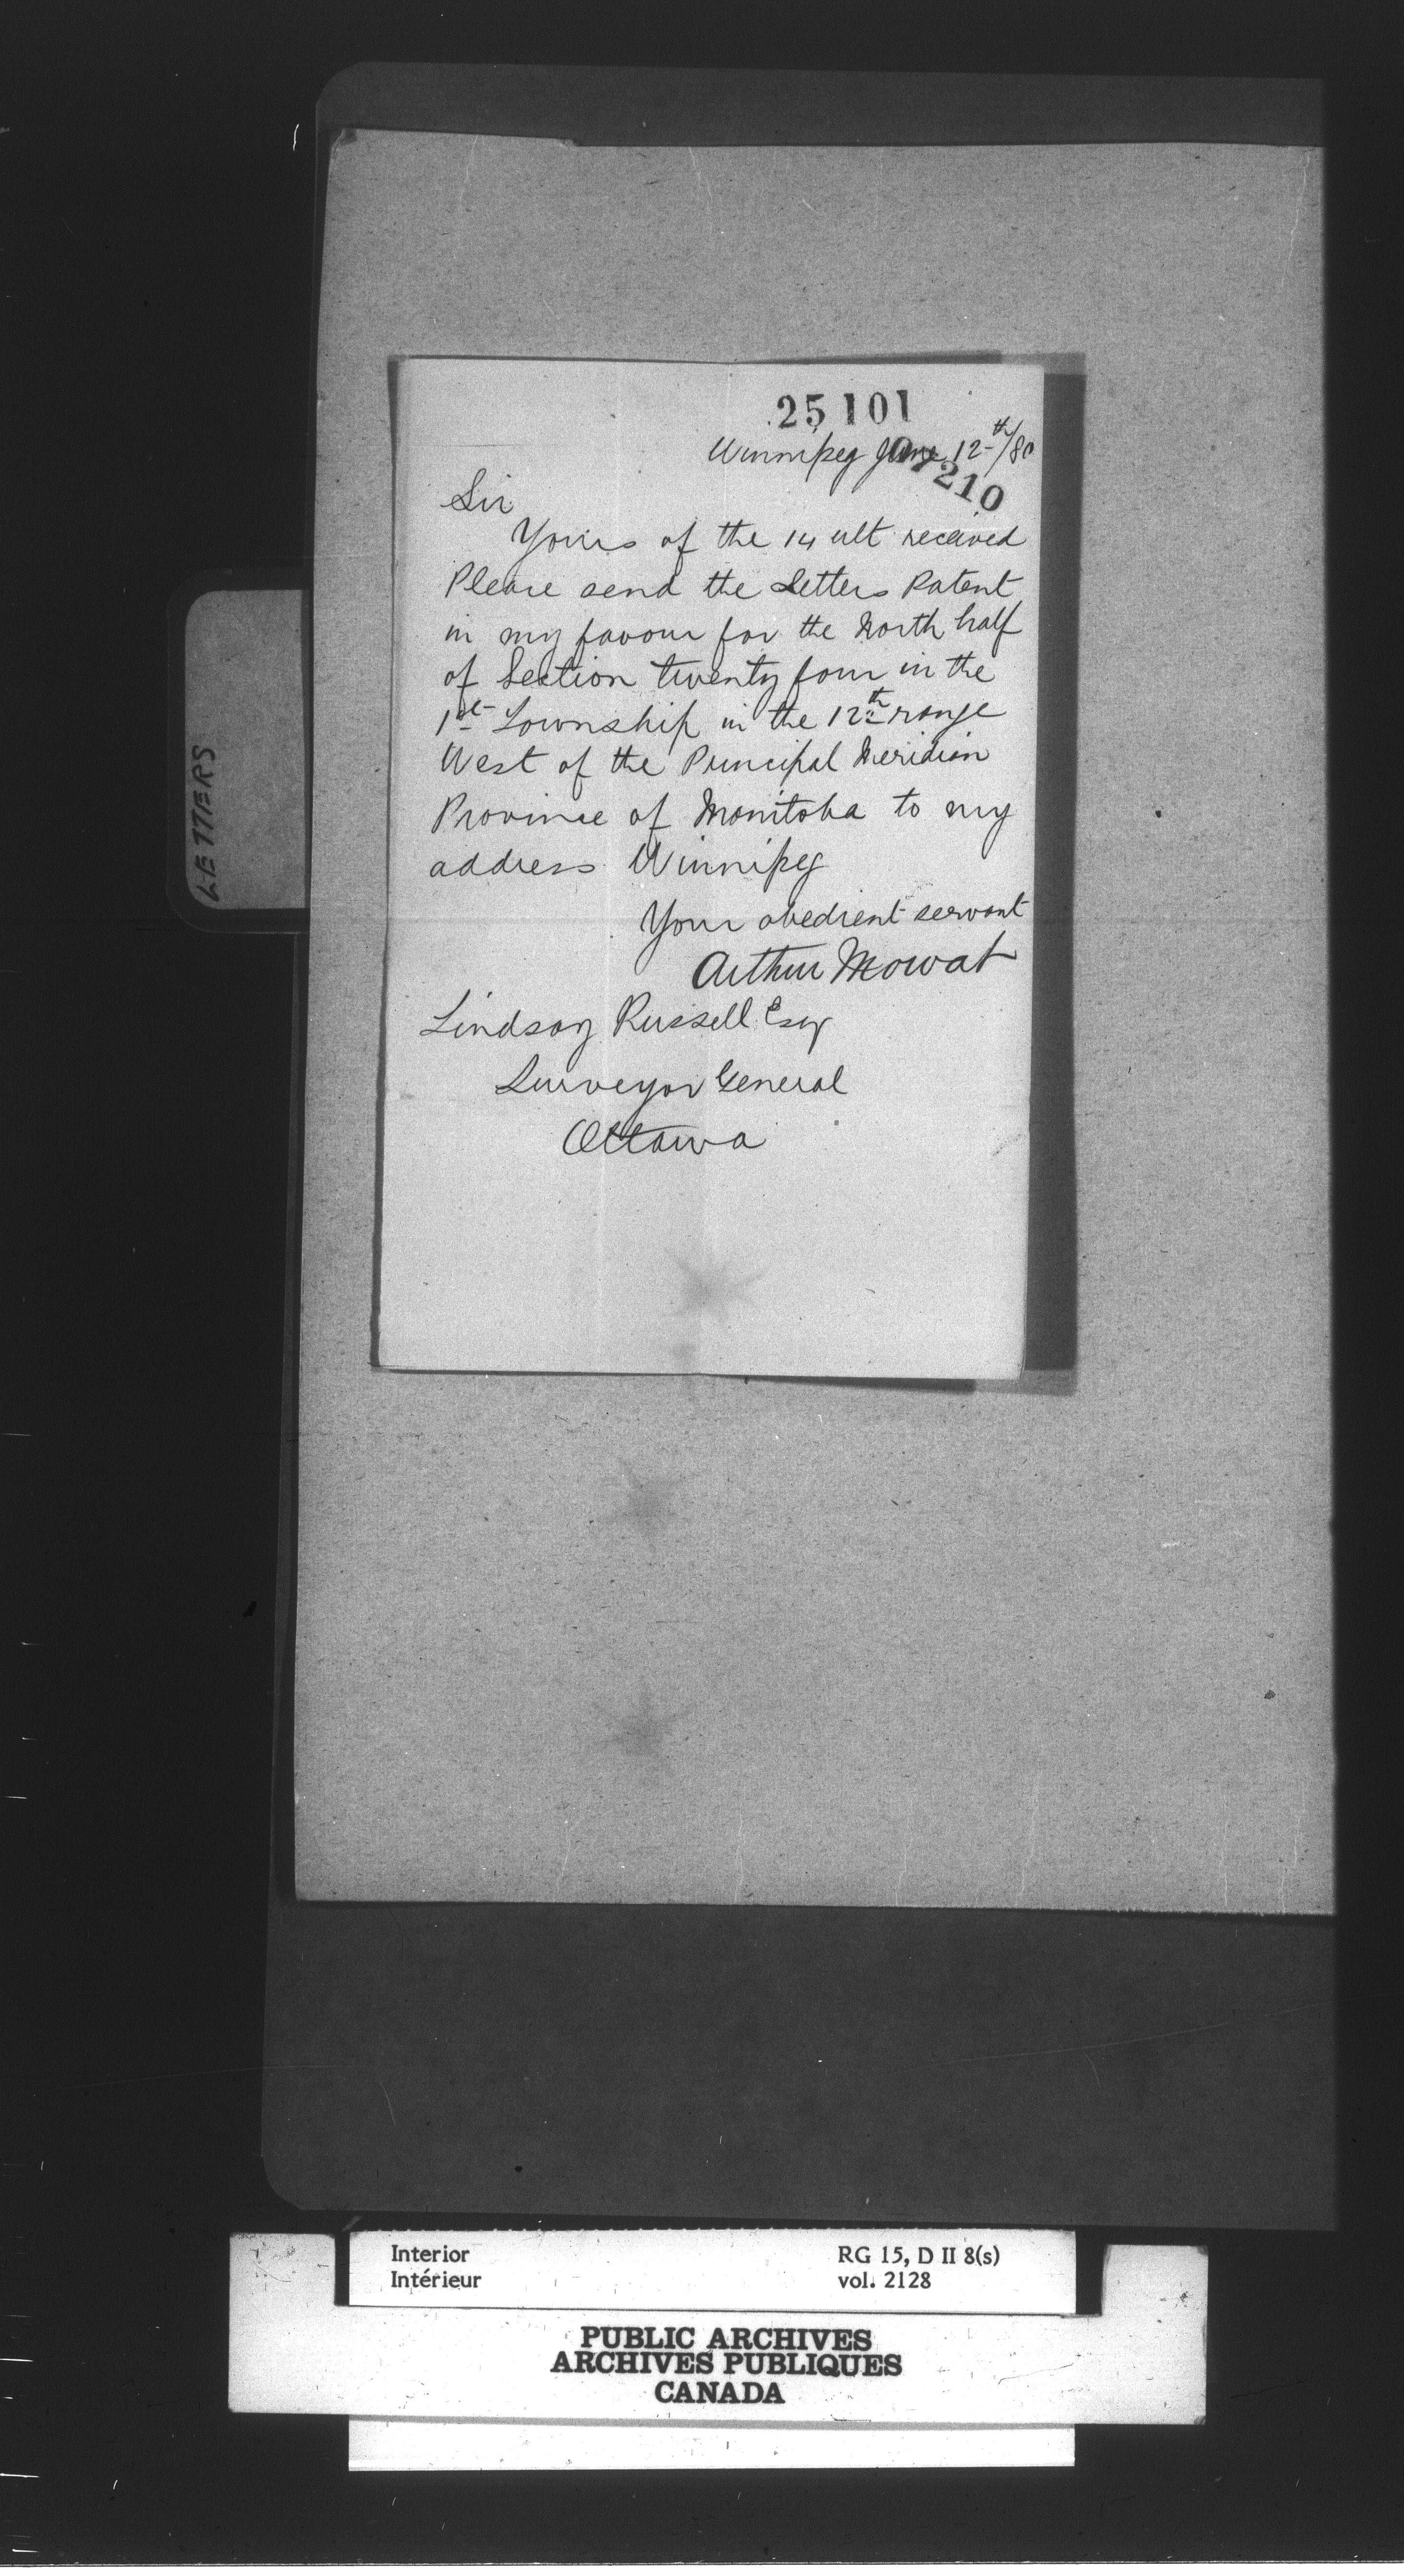 25101
Winnipeg June 12th/80
210
Sir
Yours of the 14 ult received
Please send the Letters Patent
in my favour for the North half
of Section twenty four in the
1st Township in the 12th range
West of the Principal Meridian
Province of Manitoba to my
address Winnipeg
Your obedient servant
Arthur Mowat
Lindsay Russell Esqr
Surveyor General
Ottawa
LETTERS
Interior
Intérieur
RG 15, D II 8(s)
vol. 2128
PUBLIC ARCHIVES
ARCHIVES PUBLIQUES
CANADA